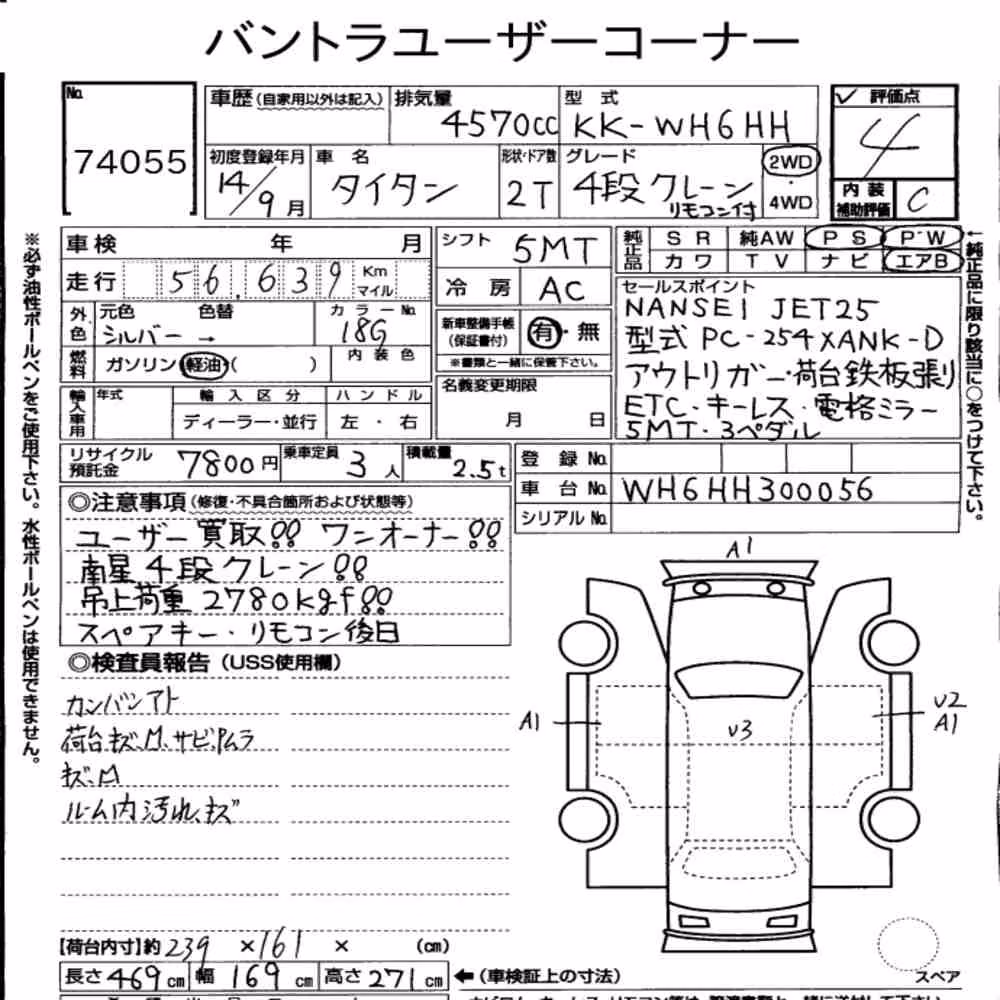 バントラユーザーコーナー
No. 74055
車歴(自家用以外は記入)
排気量 4570cc
型式 KK-WH6HH
評価点 4
初度登録年月 14/9月
車名 タイタン
形状・ドア数 2T
グレード 4段クレーン リモコン付
2WD・4WD
内装補助評価 C
車検 年 月
走行 56,639 Km マイル
外色 元色 シルバー → 色替
カラーNo. 18G
燃料 ガソリン 軽油( )
内装色
輸入車用 年式 輸入区分 ディーラー・並行 ハンドル 左・右
シフト 5MT
冷房 AC
新車整備手帳(保証書付) 有・無
※書類と一緒に保管下さい。
名義変更期限 月 日
純正品 SR 純AW PS PW
カワ TV ナビ エアB
セールスポイント
NANSEI JET25
型式 PC-254XANK-D
アウトリガー・荷台鉄板張り
ETC・キーレス・電格ミラー
5MT・3ペダル
リサイクル預託金 7800円
乗車定員 3人
積載量 2.5t
登録No.
車台No. WH6HH300056
シリアルNo.
◎注意事項(修復・不具合箇所および状態等)
ユーザー買取!! ワンオーナー!!
南星4段クレーン!!
吊上荷重2780kgf!!
スペアキー・リモコン後日
◎検査員報告(USS使用欄)
カンバンアト
荷台キズ、M、サビ、Pムラ
キズ、M
ルーム内汚れ、キズ
A1
A1
U3
U2
A1
【荷台内寸】約239×161×(cm)
長さ469cm 幅169cm 高さ271cm
←(車検証上の寸法)
スペア
※必ず油性ボールペンをご使用下さい。水性ボールペンは使用できません。
←純正品に限り該当に○をつけて下さい。